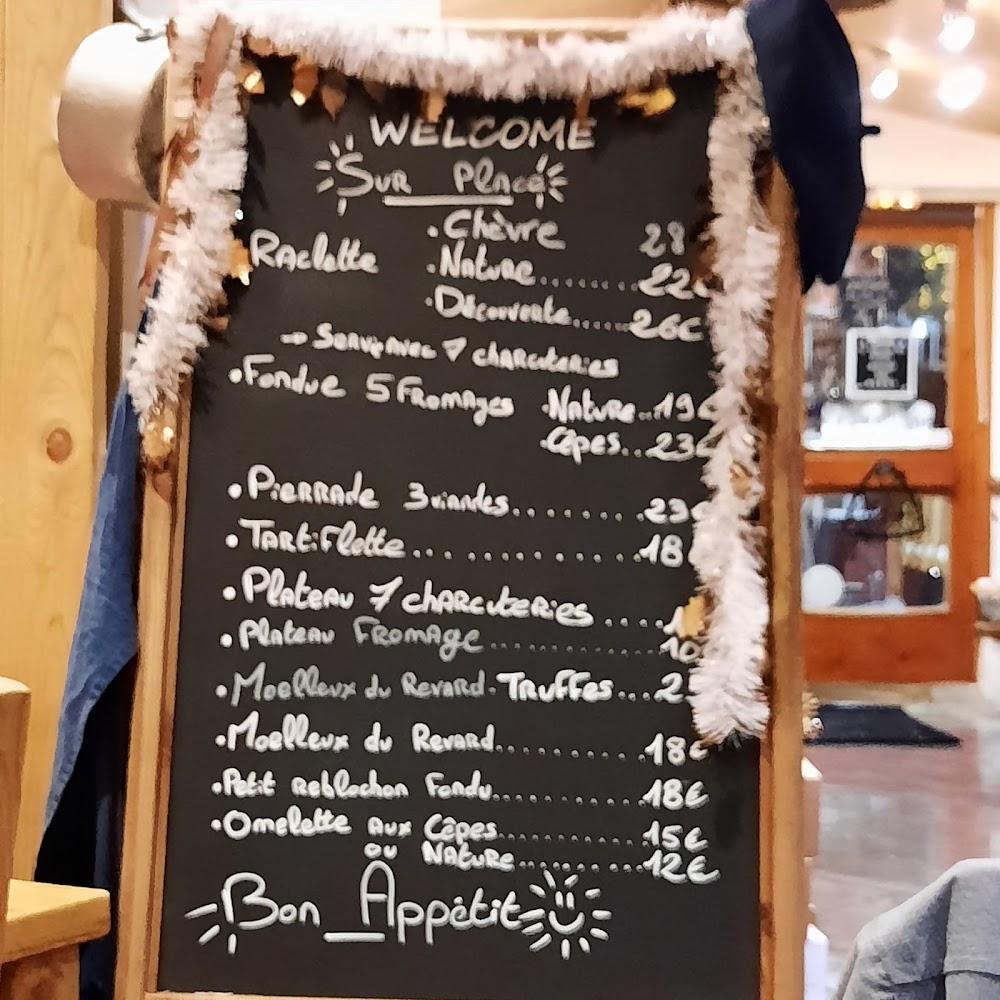 WELCOME
Sur Place
.Chèvre 28
Raclette .Nature........22€
.Découverte......26€
→ Servie avec 7 charcuteries
.Fondue 5 Fromages .Nature..19€
.Cêpes..23€
.Pierrade 3 viandes........23€
.Tartiflette............18€
.Plateau 7 charcuteries ....
.Plateau Fromage............10
.Moelleux du Revard.Truffes...
.Moelleux du Revard..........18€
.Petit Reblochon Fondu..........18€
.Omelette aux Cêpes..........15€
ou Nature..........12€
Bon Appétit